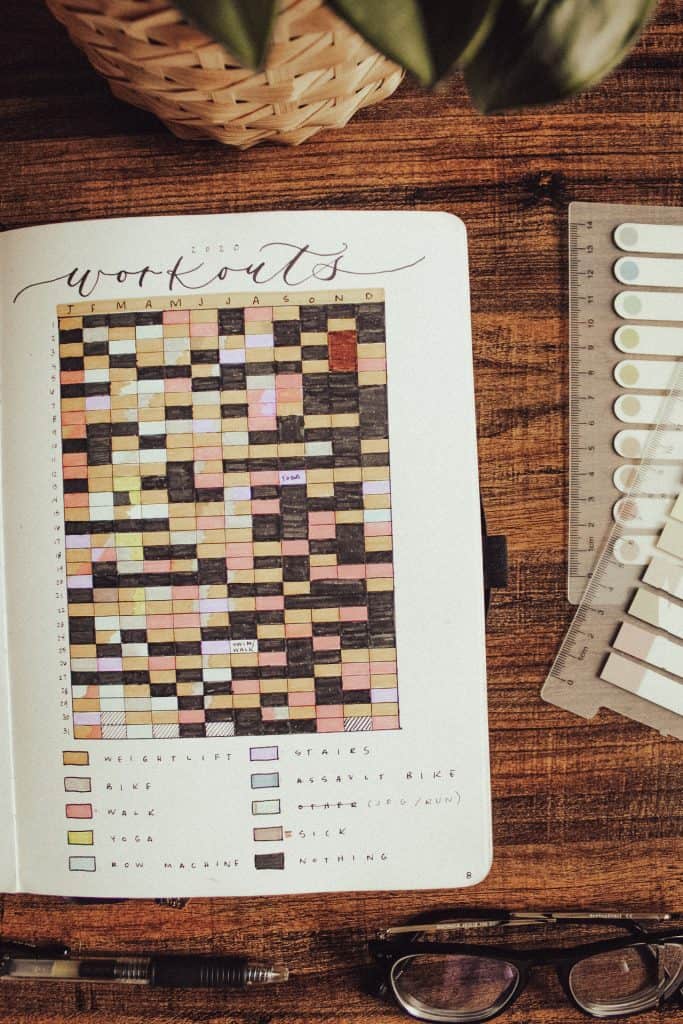 2020
workouts
J F M A M J J A S O N D
1
2
3
4
5
6
7
8
9
10
11
12
13
14 YOGA
15
16
17
18
19
20
21
22
23
24
25 SWIM/
WALK
26
27
28
29
30
31
WEIGHTLIFT STAIRS
BIKE ASSAULT BIKE
WALK OTHER (JOG/RUN)
YOGA SICK
ROW MACHINE NOTHING
8
14
13
12
11
10
9
8